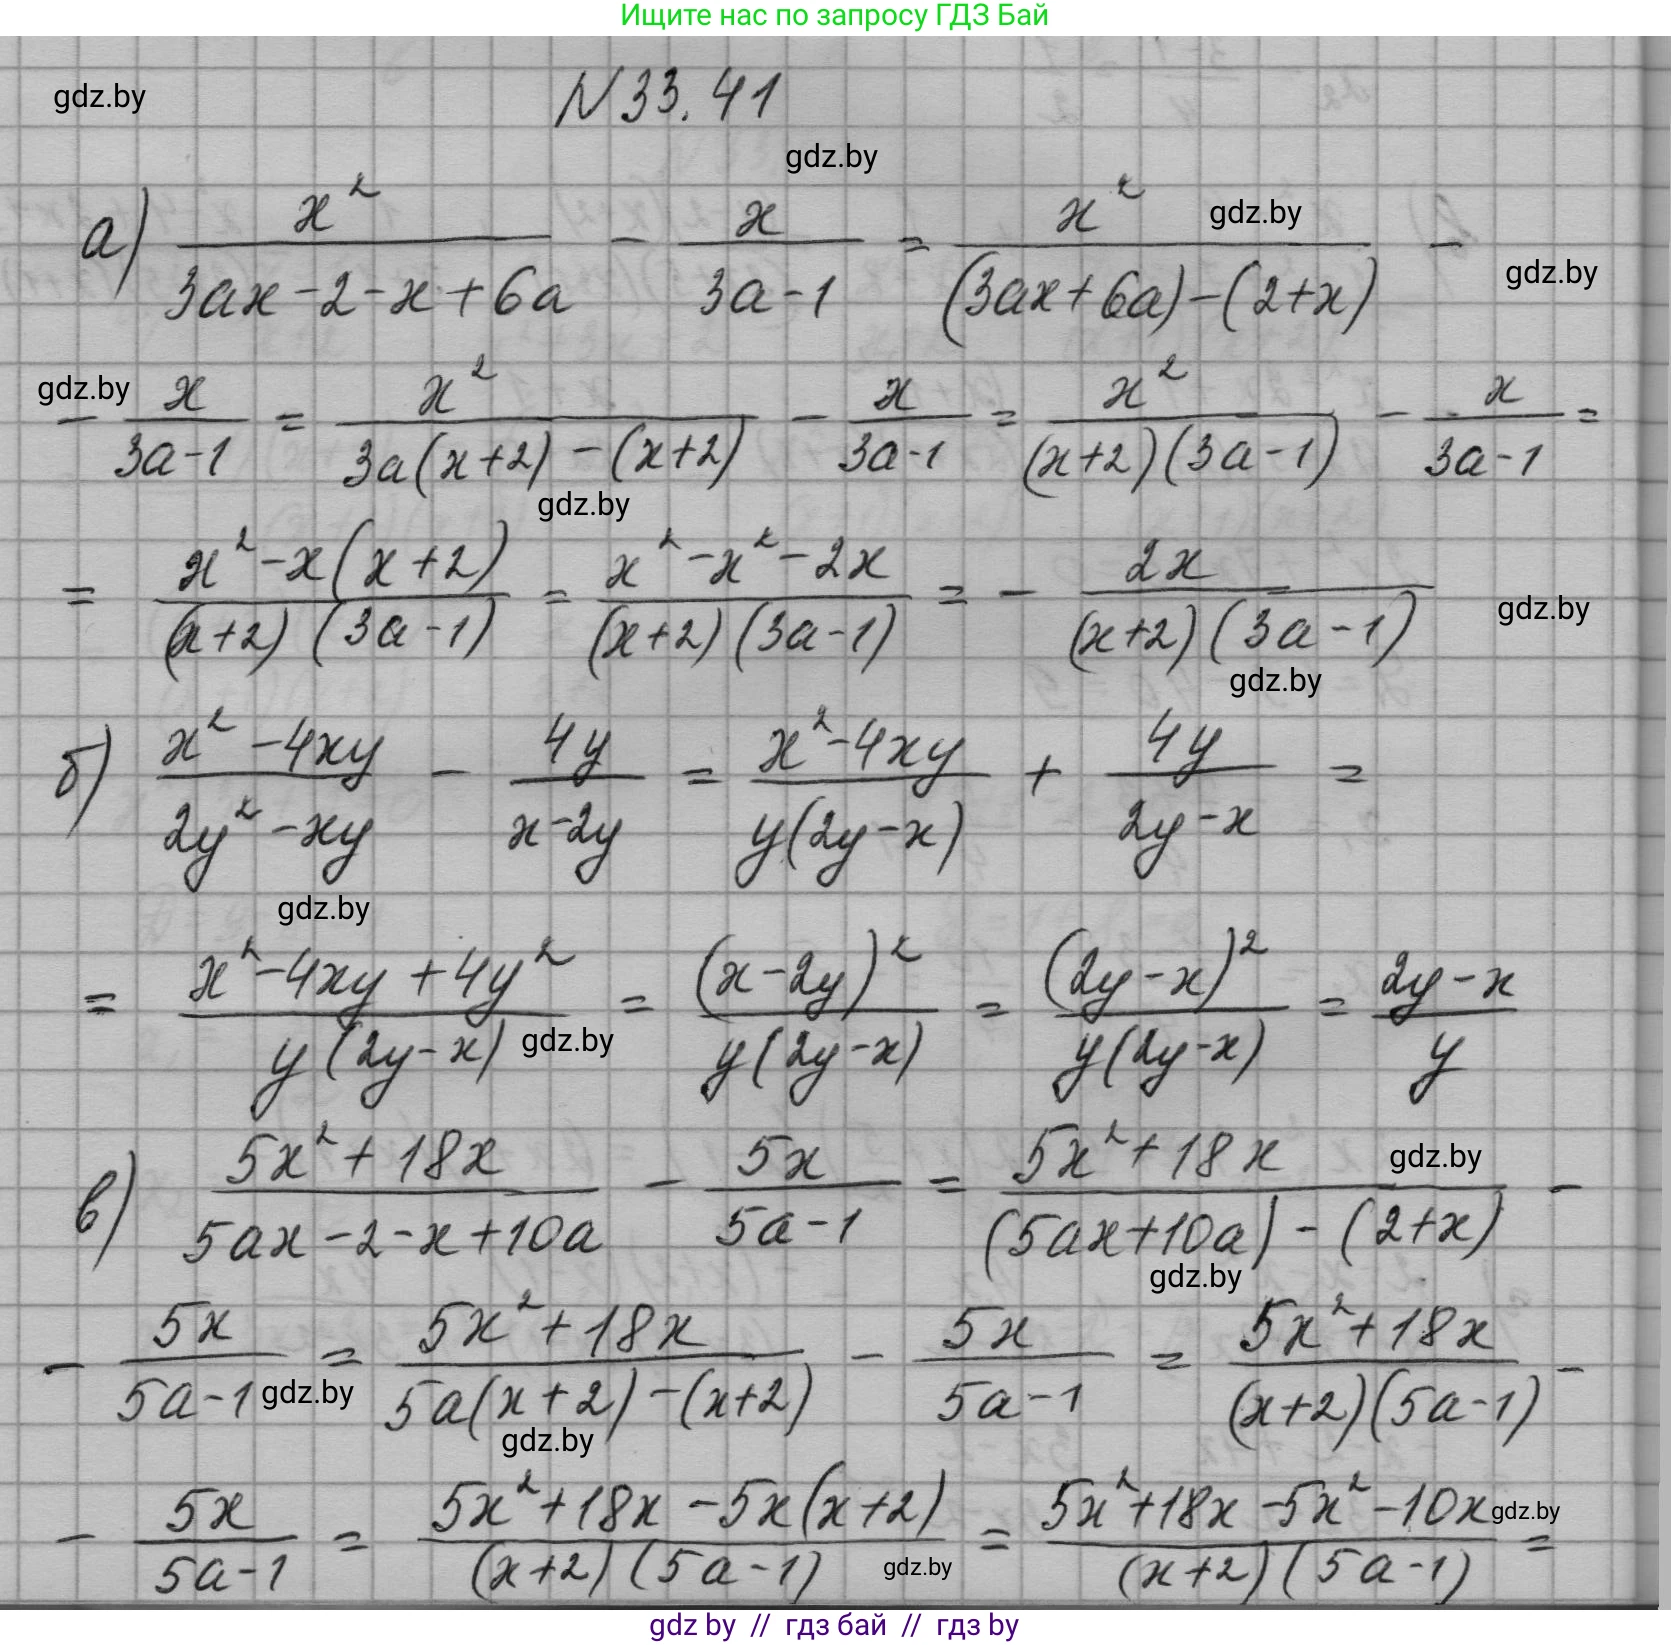 Ищите нас по запросу ГДЗ Бай
gdz.by
N 33.41
gdz.by
а) x²/(3ax-2-x+6a) - x/(3a-1) = x²/((3ax+6a)-(2+x)) -
gdz.by
gdz.by
gdz.by
- x/(3a-1) = x²/(3a(x+2)-(x+2)) - x/(3a-1) = x²/((x+2)(3a-1)) - x/(3a-1) =
gdz.by
= (x²-x(x+2))/((x+2)(3a-1)) = (x²-x²-2x)/((x+2)(3a-1)) = - 2x/((x+2)(3a-1))
gdz.by
gdz.by
б) (x²-4xy)/(2y²-xy) - 4y/(x-2y) = (x²-4xy)/(y(2y-x)) + 4y/(2y-x) =
gdz.by
= (x²-4xy+4y²)/(y(2y-x)) = (x-2y)²/(y(2y-x)) = (2y-x)²/(y(2y-x)) = (2y-x)/y
gdz.by
в) (5x²+18x)/(5ax-2-x+10a) - 5x/(5a-1) = (5x²+18x)/((5ax+10a)-(2+x)) -
gdz.by
gdz.by
- 5x/(5a-1) = (5x²+18x)/(5a(x+2)-(x+2)) - 5x/(5a-1) = (5x²+18x)/((x+2)(5a-1)) -
gdz.by
gdz.by
- 5x/(5a-1) = (5x²+18x-5x(x+2))/((x+2)(5a-1)) = (5x²+18x-5x²-10x)/((x+2)(5a-1)) =
gdz.by
gdz.by
gdz by // гдз бай // гдз by